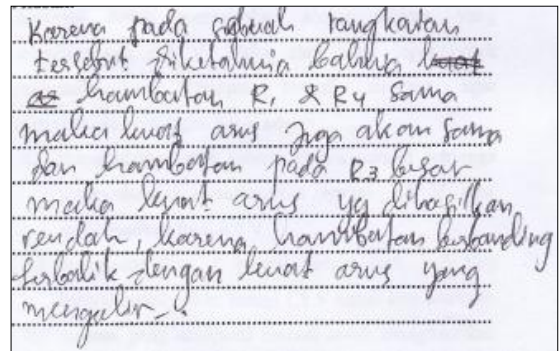 Karena pada sebuah rangkaian
tersebut diketahuia bahwa kuat
hambatan R1 & R4 sama
maka kuat arus juga akan sama
dan hambatan pada R3 besar
maka kuat arus yg dihasilkan
rendah, karena hambatan berbanding
terbalik dengan kuat arus yang
mengalir.